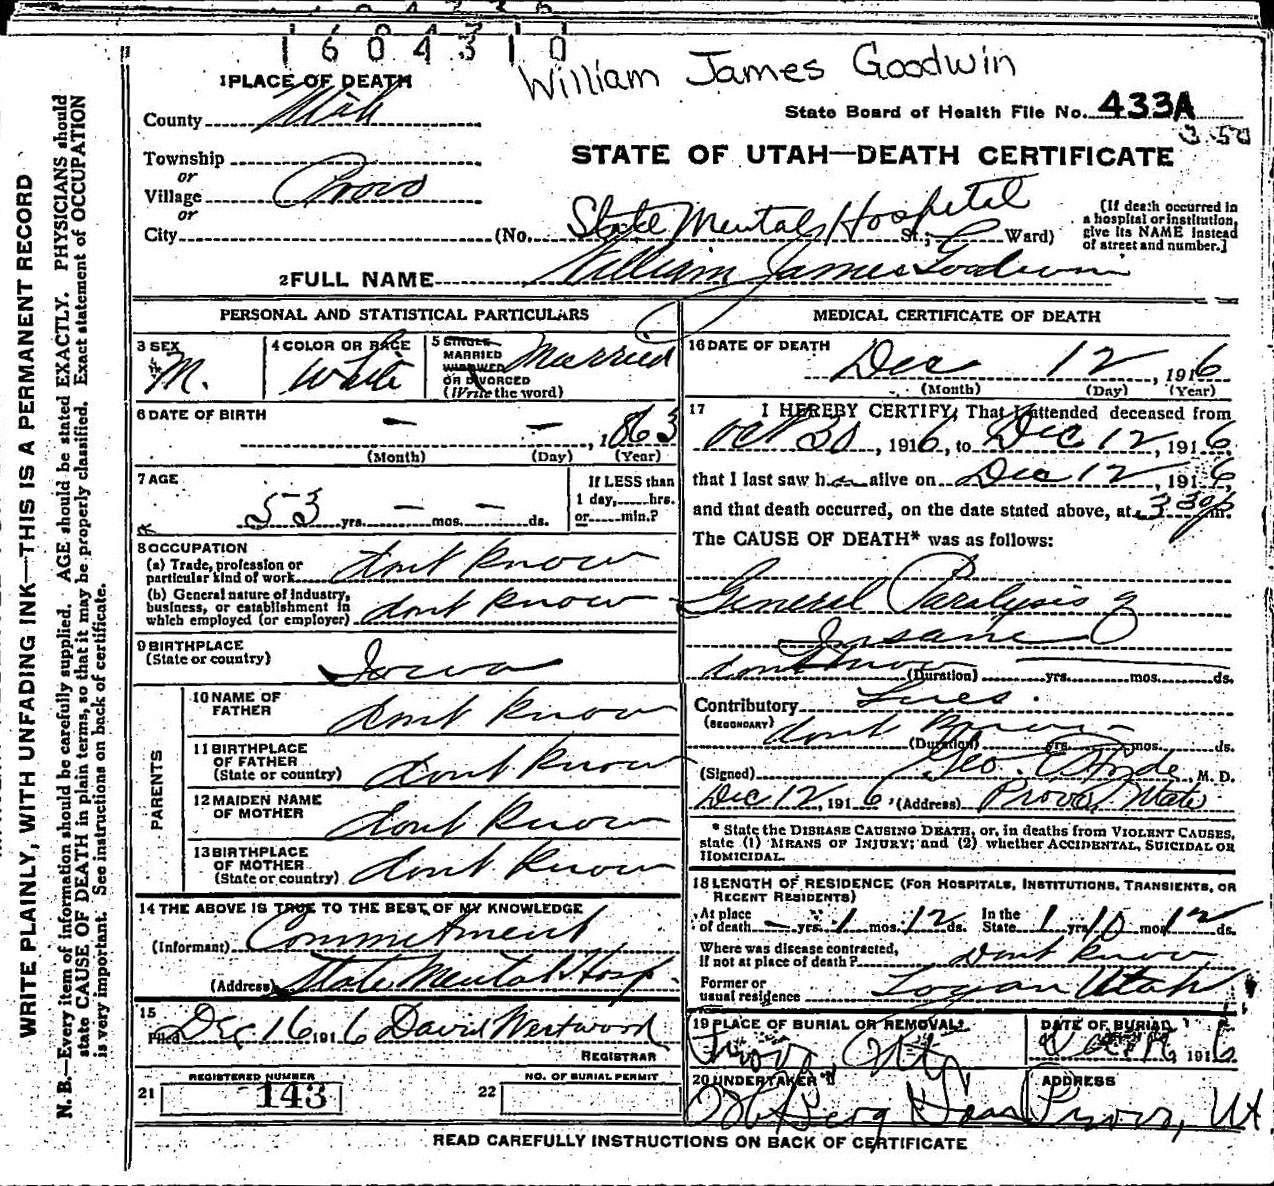 1604310
William James Goodwin
1 PLACE OF DEATH
State Board of Health File No. 433A
3 50
County Utah
STATE OF UTAH—DEATH CERTIFICATE
Township
or
Village Provo
or
City (No. State Mental Hospital St.; Ward)
[If death occurred in a hospital or institution, give its NAME instead of street and number.]
2 FULL NAME William James Goodwin
PERSONAL AND STATISTICAL PARTICULARS
3 SEX M.
4 COLOR OR RACE White
5 SINGLE MARRIED WIDOWED OR DIVORCED (Write the word) Married
6 DATE OF BIRTH — — , 1863
(Month) (Day) (Year)
7 AGE 53 yrs. — mos. — ds.
If LESS than 1 day, hrs. or min.?
8 OCCUPATION
(a) Trade, profession or particular kind of work dont know
(b) General nature of industry, business, or establishment in which employed (or employer) dont know
9 BIRTHPLACE
(State or country) Iowa
PARENTS
10 NAME OF FATHER dont know
11 BIRTHPLACE OF FATHER (State or country) dont know
12 MAIDEN NAME OF MOTHER dont know
13 BIRTHPLACE OF MOTHER (State or country) dont know
14 THE ABOVE IS TRUE TO THE BEST OF MY KNOWLEDGE
(Informant) Commitment
(Address) State Mental Hosp
15
Filed Dec 16 1916 David Westwood
REGISTRAR
21 REGISTERED NUMBER 143
22 NO. OF BURIAL PERMIT
MEDICAL CERTIFICATE OF DEATH
16 DATE OF DEATH
Dec 12, 1916
(Month) (Day) (Year)
17 I HEREBY CERTIFY, That I attended deceased from
Oct 30, 1916, to Dec 12, 1916
that I last saw h alive on Dec 12, 1916,
and that death occurred, on the date stated above, at 3 30 p m.
The CAUSE OF DEATH* was as follows:
General Paralysis of
Insane
dont know (Duration) yrs. mos. ds.
Contributory Lues.
(SECONDARY) dont know
(Duration) yrs. mos. ds.
(Signed) Geo. E. Hyde, M. D.
Dec 12, 1916 (Address) Provo Utah
* State the DISEASE CAUSING DEATH, or, in deaths from VIOLENT CAUSES, state (1) MEANS OF INJURY; and (2) whether ACCIDENTAL, SUICIDAL OR HOMICIDAL.
18 LENGTH OF RESIDENCE (FOR HOSPITALS, INSTITUTIONS, TRANSIENTS, OR RECENT RESIDENTS)
At place of death — yrs. 1 mos. 12 ds. In the State 1 yrs. 10 mos. 12 ds.
Where was disease contracted, If not at place of death? Dont know
Former or usual residence Logan Utah
19 PLACE OF BURIAL OR REMOVAL Provo, Utah
DATE OF BURIAL 1916
20 UNDERTAKER Berg
ADDRESS Provo, Ut
READ CAREFULLY INSTRUCTIONS ON BACK OF CERTIFICATE
WRITE PLAINLY, WITH UNFADING INK—THIS IS A PERMANENT RECORD
N. B.—Every item of information should be carefully supplied. AGE should be stated EXACTLY. PHYSICIANS should
state CAUSE OF DEATH in plain terms, so that it may be properly classified. Exact statement of OCCUPATION
is very important. See instructions on back of certificate.